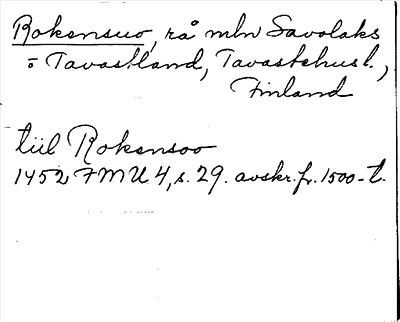 Rokensuo, rå mln Savolaks
o Tavastland, Tavastehus l.,
Finland
tiil Rokensoo
1452 FMU 4, s. 29. avskr. fr. 1500-t.